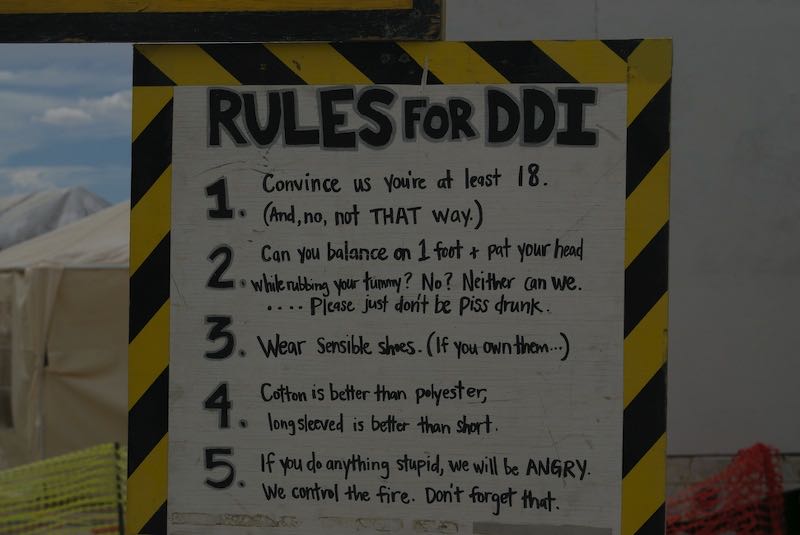 RULES FOR DDI
1. Convince us you're at least 18.
(And, no, not THAT way.)
2. Can you balance on 1 foot + pat your head
while rubbing your tummy? No? Neither can we.
.... Please just don't be piss drunk.
3. Wear sensible shoes. (If you own them...)
4. Cotton is better than polyester,
longsleeved is better than short.
5. If you do anything stupid, we will be ANGRY.
We control the fire. Don't forget that.